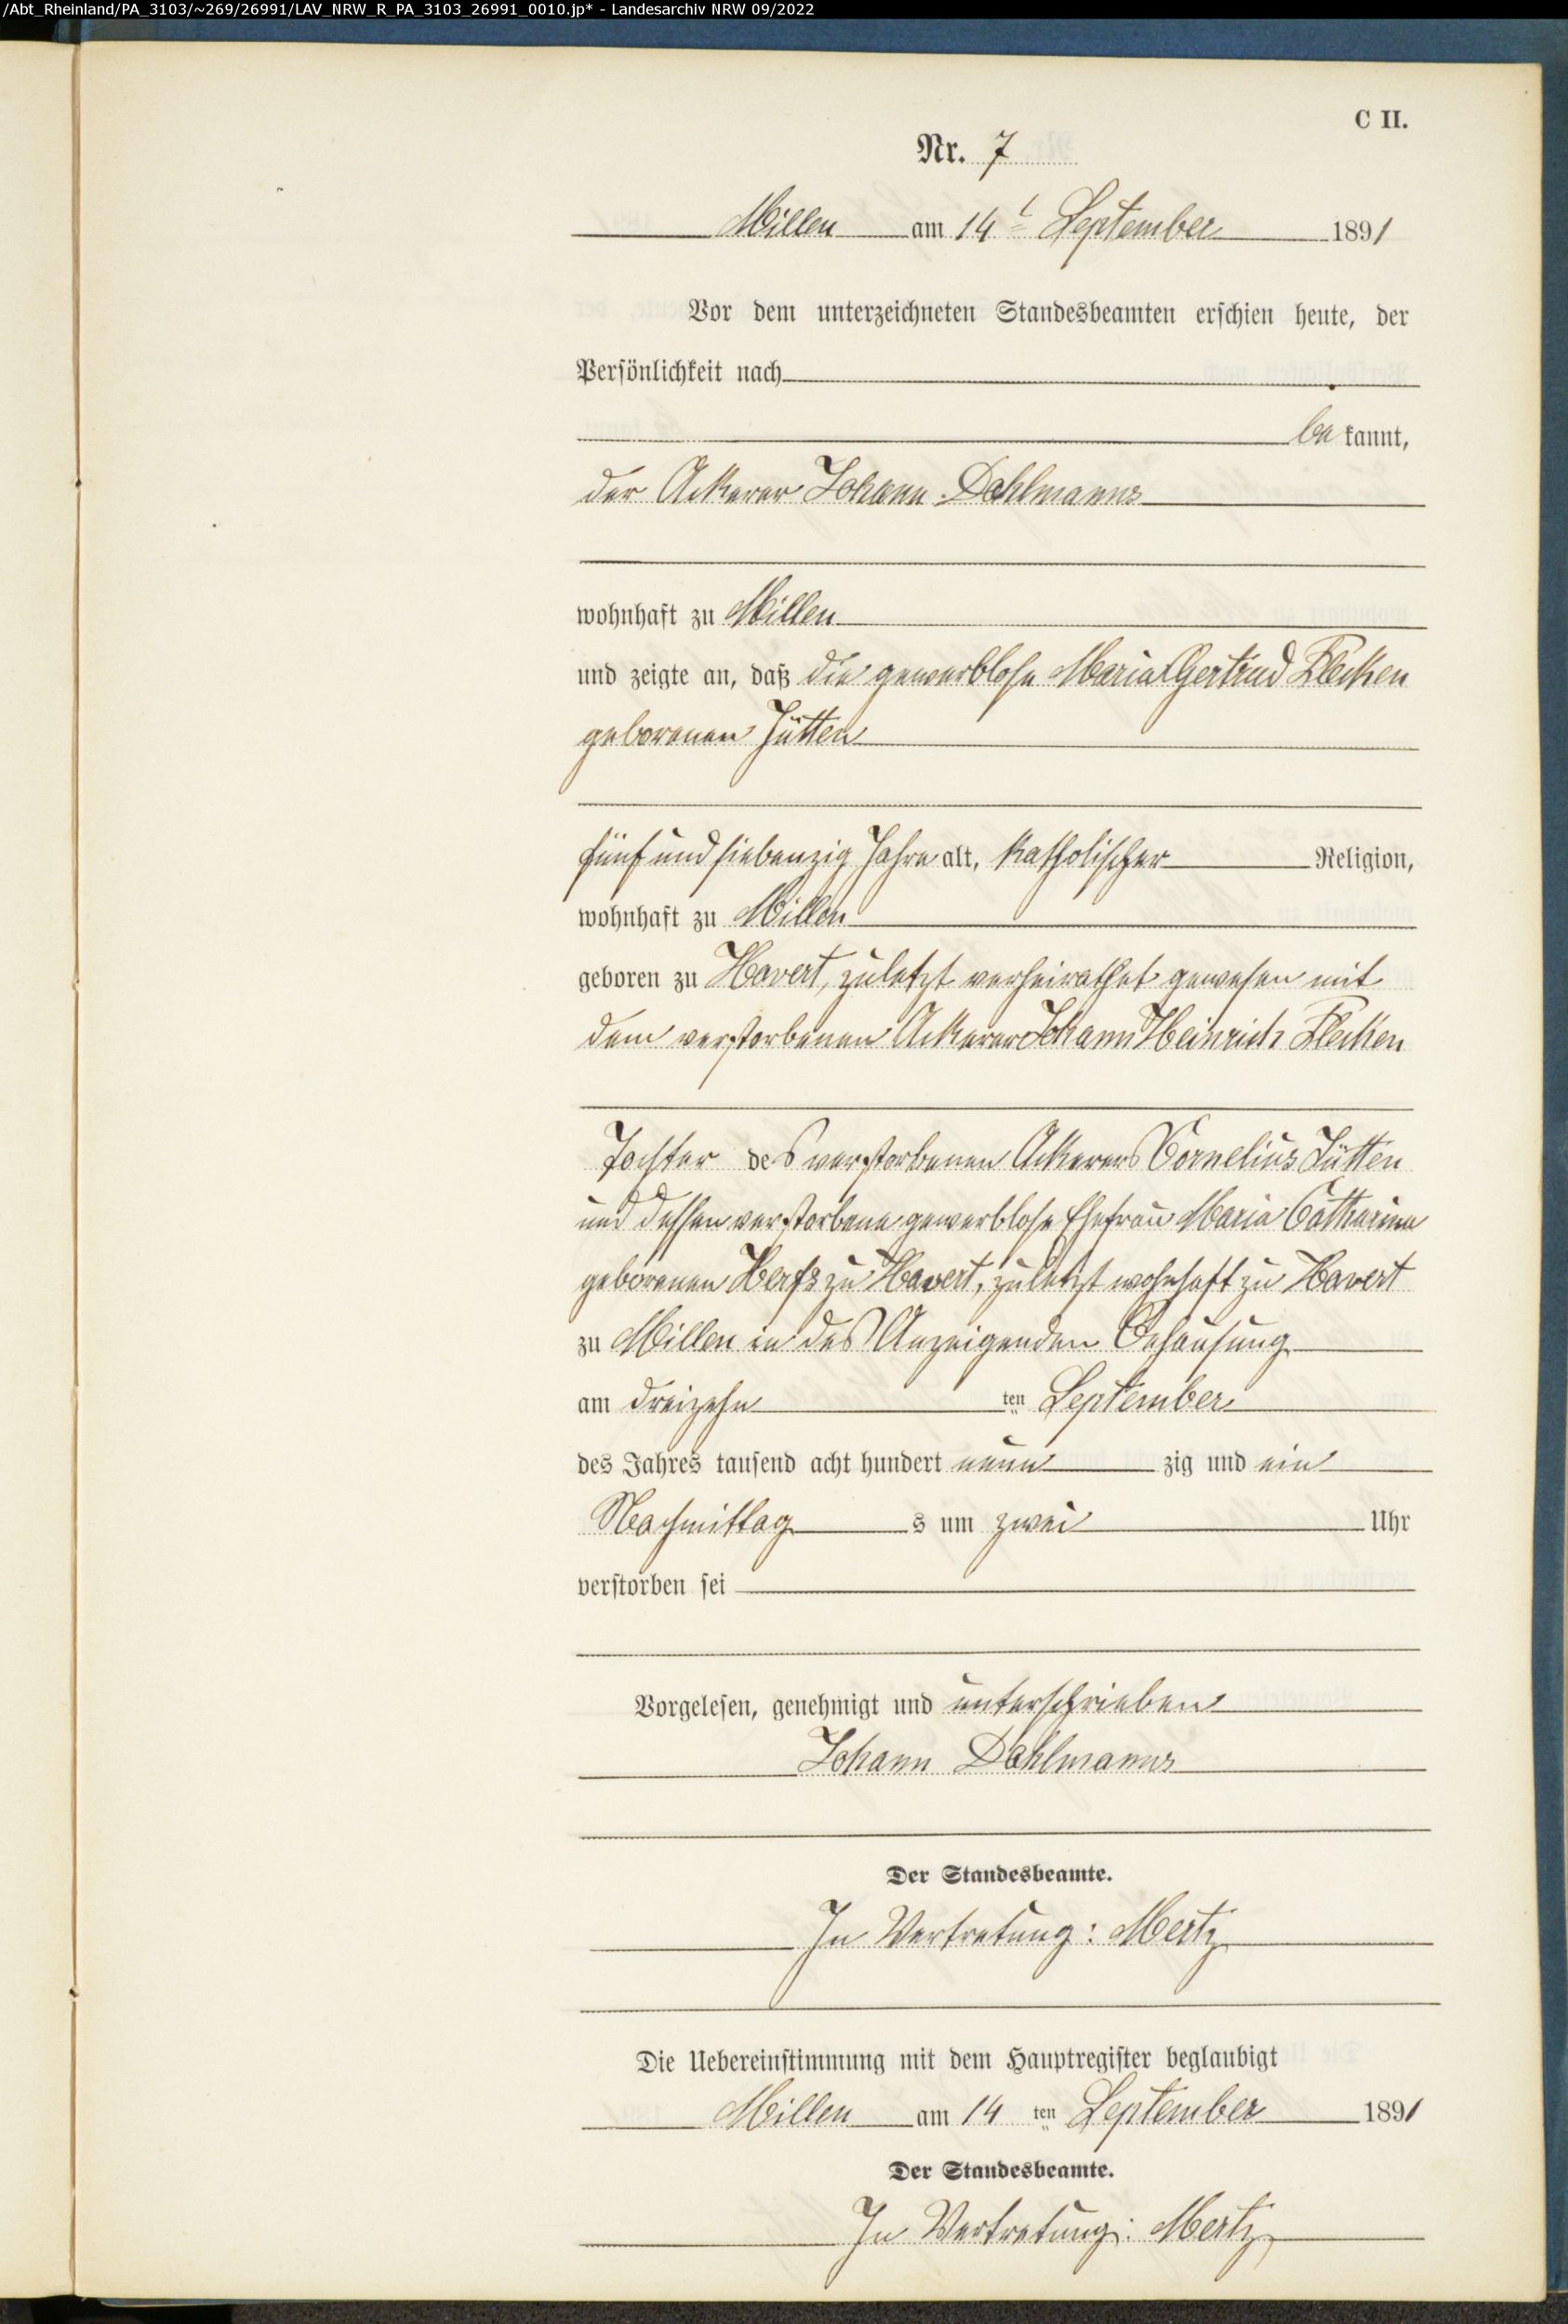 /Abt_Rheinland/PA_3103/~269/26991/LAV_NRW_R_PA_3103_26991_0010.jp* - Landesarchiv NRW 09/2022
C II.
Nr. 7
Millen am 14t September 1891
Vor dem unterzeichneten Standesbeamten erschien heute, der
Persönlichkeit nach
be kannt,
der Ackerer Johann Dahlmanns
wohnhaft zu Millen
und zeigte an, daß die gewerblose Maria Gertrud Flecken
geborenen Jütten
fünf und siebenzig Jahre alt, katholischer Religion,
wohnhaft zu Millen
geboren zu Havert, zuletzt verheirathet gewesen mit
dem verstorbenen Ackerer Johann Heinrich Flecken
Tochter des verstorbenen Ackerers Cornelius Jütten
und dessen verstorbene gewerblose Ehefrau Maria Catharina
geborenen zu Havert, zuletzt wohnhaft zu Havert
zu Millen in des Anzeigenden Behausung
am dreizehn ten September
des Jahres tausend acht hundert neun zig und ein
Nachmittag s um zwei Uhr
verstorben sei
Vorgelesen, genehmigt und unterschrieben
Johann Dahlmanns
Der Standesbeamte.
In Vertretung: Mertz
Die Uebereinstimmung mit dem Hauptregister beglaubigt
Millen am 14 ten September 1891
Der Standesbeamte.
In Vertretung: Mertz